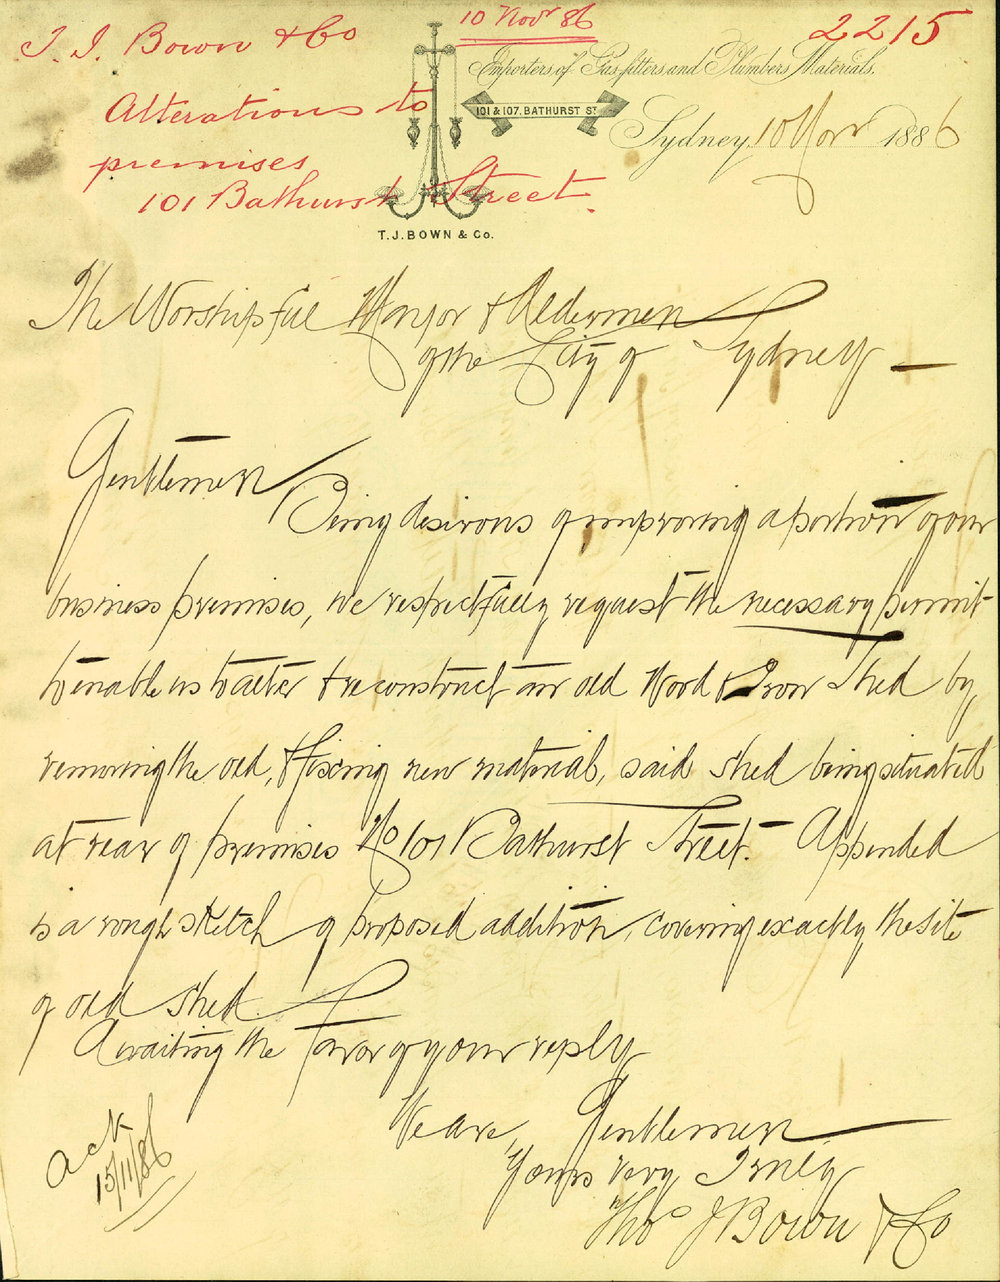 10 Novr 86
2215
T. J. Bown & Co
Alterations to
premises
101 Bathurst Street.
Importers of Gasfitters and Plumbers Materials.
101 & 107, BATHURST ST.
Sydney, 10 Novr 1886
T. J. BOWN & Co.
The Worshipful Mayor & Aldermen
of the City of Sydney —
Gentlemen
Being desirous of improving a portion of our
business premises, we respectfully request the necessary permit
to enable us to alter & reconstruct an old Wood & Iron Shed by
removing the old, & fixing new material, said shed being situated
at rear of premises No 101 Bathurst Street. - Appended
is a rough sketch of proposed addition, covering exactly the site
of old shed.
Awaiting the favor of your reply
We are, Gentlemen
Yours very Truly
Thos J Bown & Co
ack
15/11/86